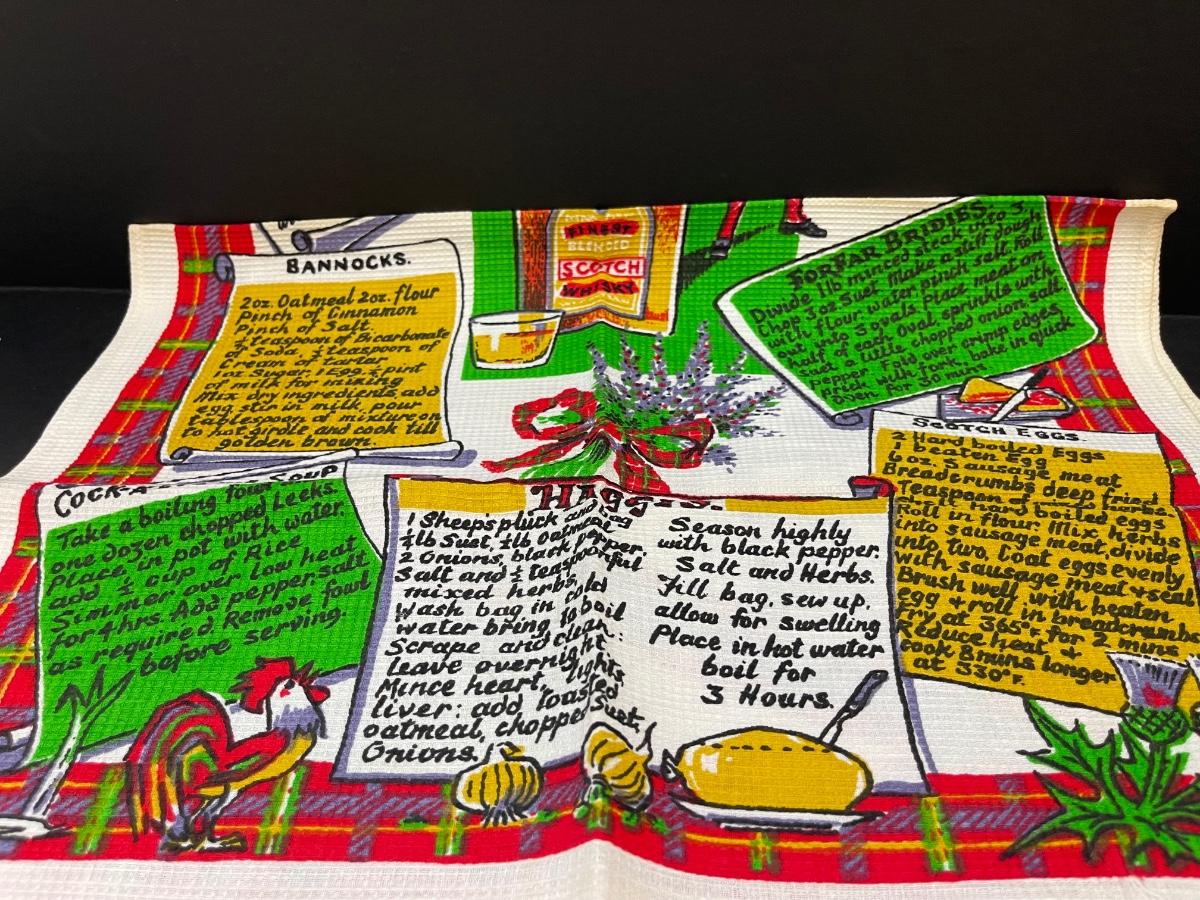 FINEST
BLENDED
SCOTCH
WHISKY
BANNOCKS.
2oz. Oatmeal 2oz. flour
Pinch of Cinnamon
Pinch of Salt.
½ teaspoon of Bicarbonate
of Soda, ½ teaspoon of
Cream of Tartar
1oz Sugar. 1 Egg. ¼ pint
of milk for mixing
Mix dry ingredients, add
egg, stir in milk, pour
tablespoons of mixture on
to hot girdle and cook till
golden brown.
FORFAR BRIDIES.
Divide 1lb minced steak into 3.
Chop 3oz Suet Make a stiff dough
with flour water pinch salt. Roll
out into 3 ovals. Place meat on
half of each. Oval, sprinkle with
suet a little chopped onion, salt
pepper Fold over crimp edges
with fork, bake in quick
Oven for 30 mins
COCK-A- SOUP
Take a boiling fowl
one dozen chopped Leeks.
Place in pot with water.
add ½ cup of Rice
Simmer over low heat
for 4 hrs. Add pepper, salt
as required. Remove fowl
before serving.
HAGGIS.
1 Sheep's pluck and bag
½lb Suet, ½lb Oatmeal
2 Onions, black pepper.
Salt and ½ teaspoonful
mixed herbs,
Wash bag in cold
water bring to boil
Scrape and clean:
leave overnight
Mince heart, lights
liver: add toasted
oatmeal, chopped Suet,
Onions.
Season highly
with black pepper.
Salt and Herbs.
Fill bag, sew up,
allow for swelling
Place in hot water
boil for
3 Hours.
SCOTCH EGGS.
2 Hard boiled Eggs
1 beaten Egg
6oz. Sausage meat
Breadcrumbs deep fried
Teaspoon of mixed herbs
Roll in flour. Mix herbs
into sausage meat, divide
into two. Coat eggs evenly
with sausage meat & seal
Brush well with beaten
egg & roll in breadcrumbs
Fry at 365°F. for 2 mins
Reduce heat &
cook 8 mins longer
at 330°F.